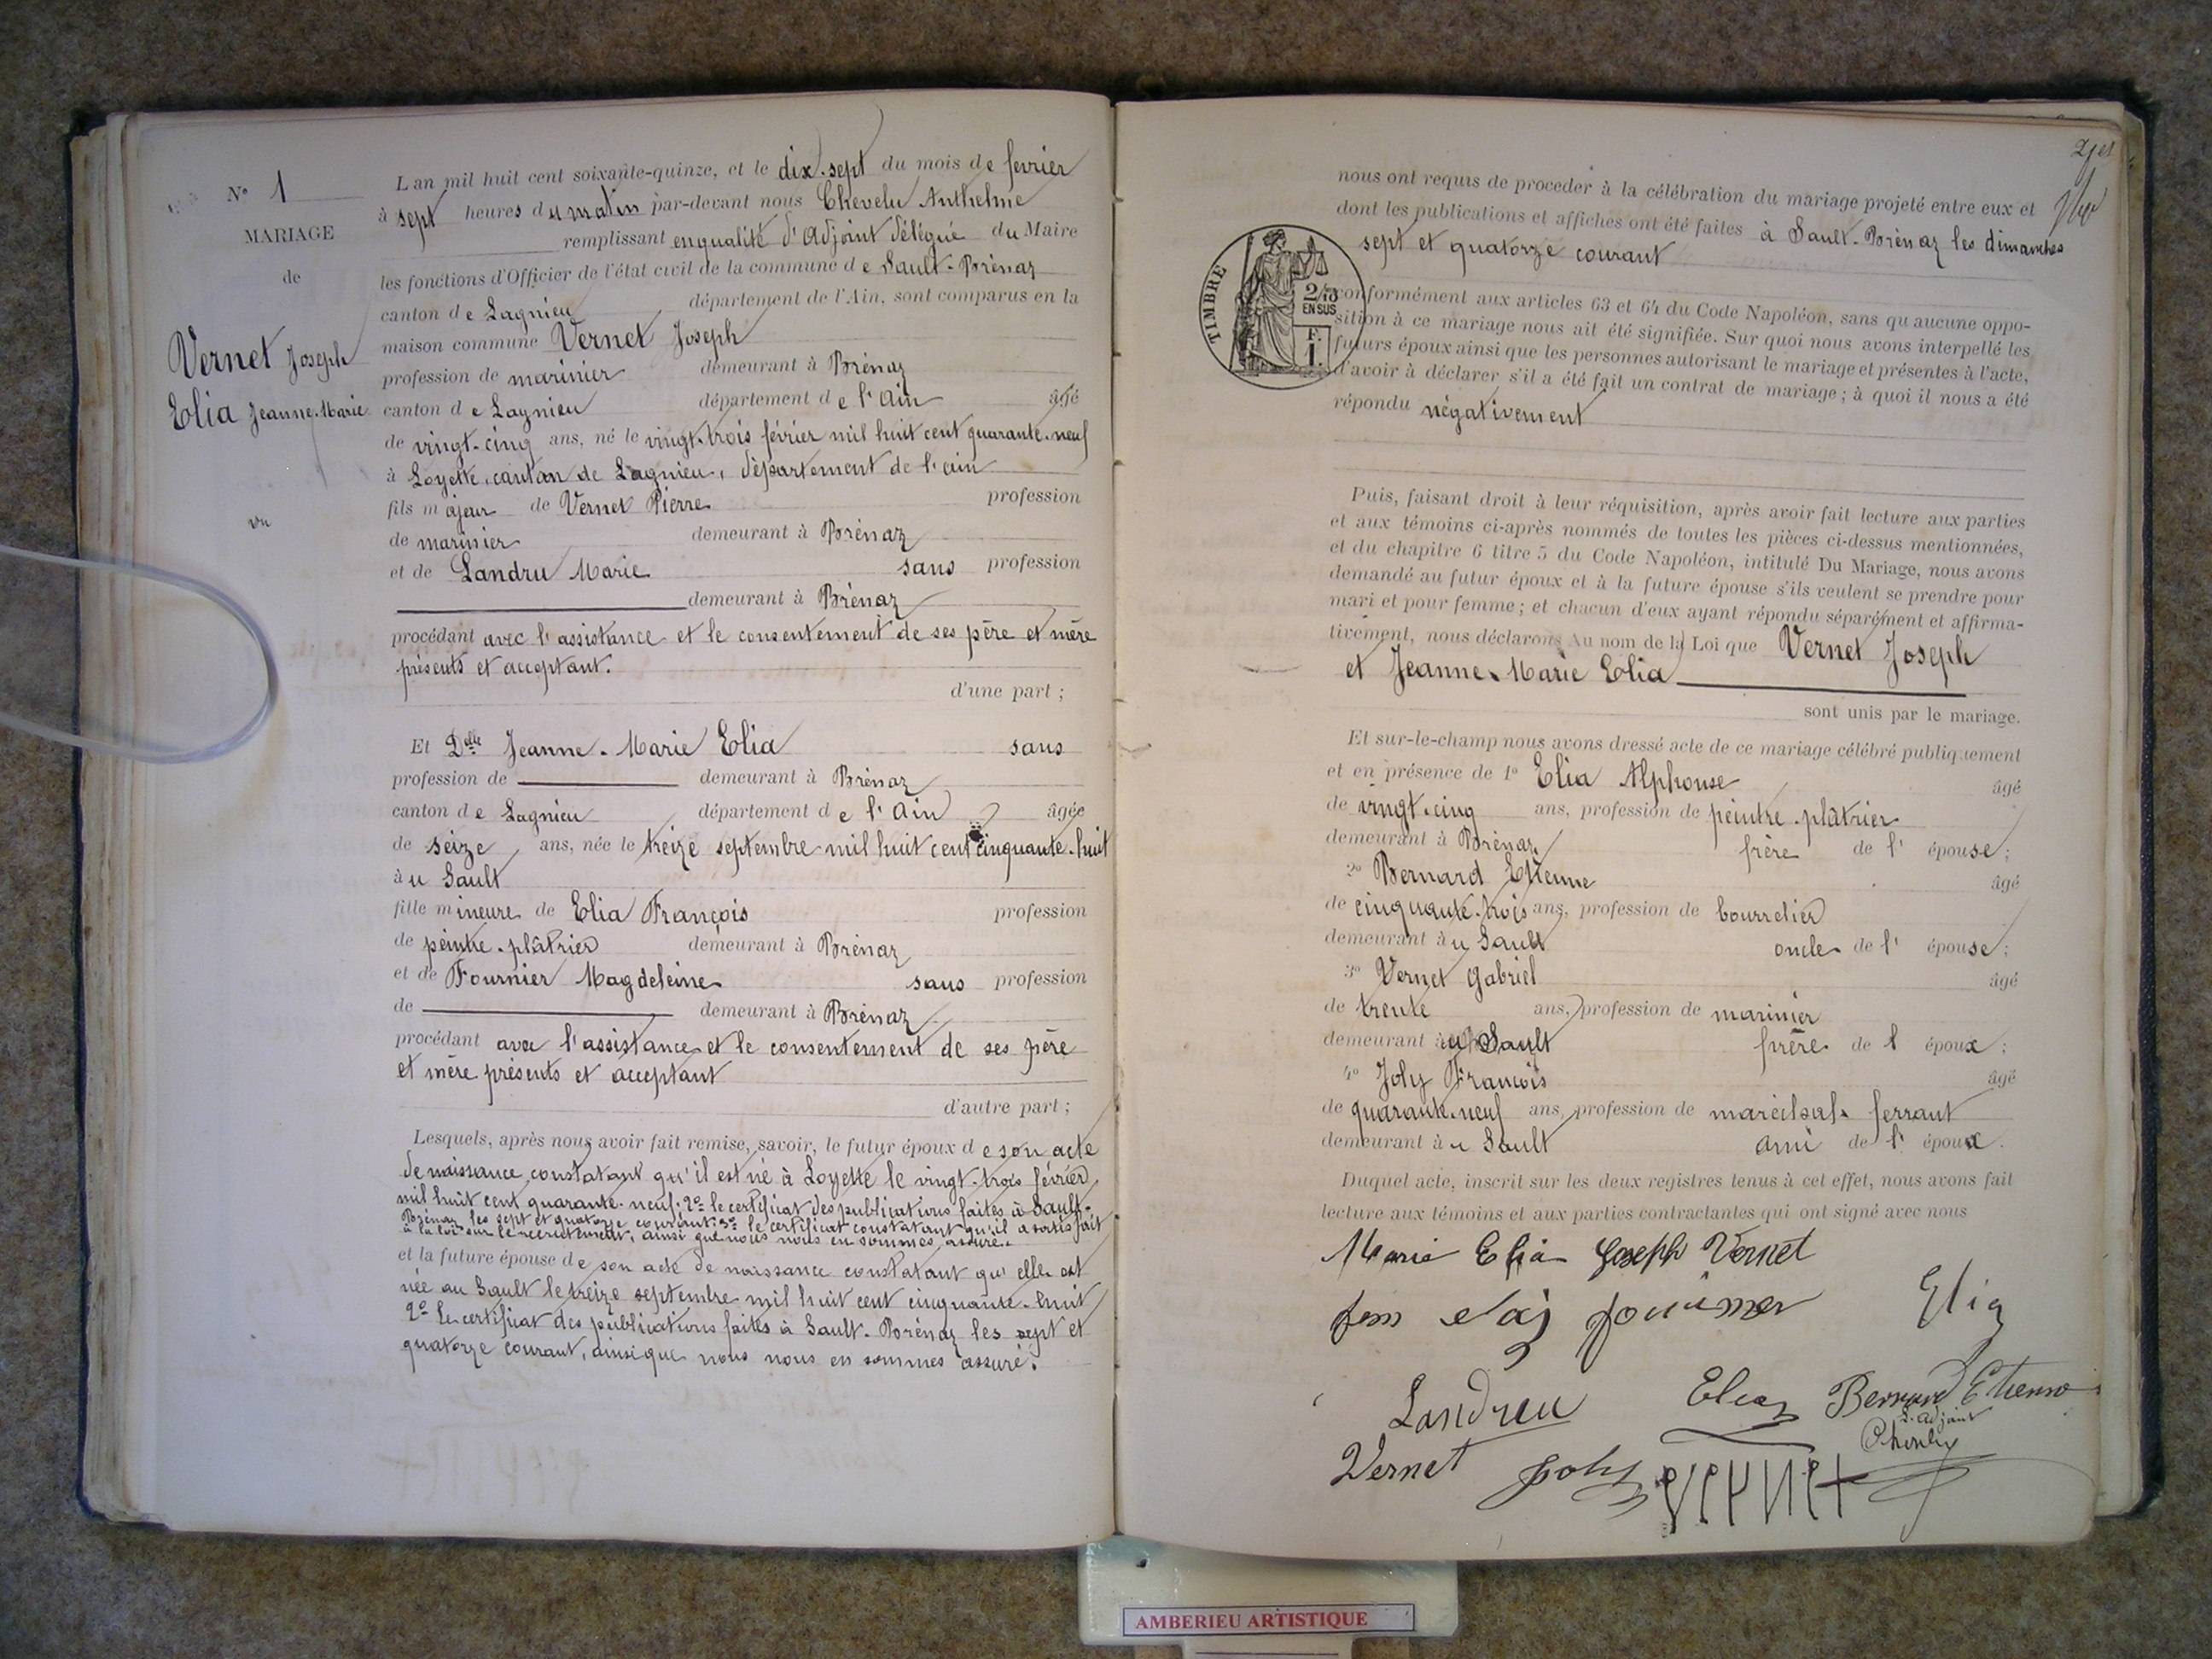 N° 1
MARIAGE
de
Vernet Joseph
Elia Jeanne-Marie
vu
L'an mil huit cent soixante-quinze, et le dix-sept du mois de février
à sept heures du matin par-devant nous Chevelu Anthelme
remplissant en qualité d'Adjoint délégué du Maire
les fonctions d'Officier de l'état civil de la commune de Sault-Brénaz
canton de Lagnieu département de l'Ain, sont comparus en la
maison commune Vernet Joseph
profession de marinier demeurant à Brénaz
canton de Lagnieu département de l'Ain âgé
de vingt-cinq ans, né le vingt-trois février mil huit cent quarante-neuf
à Loyette, canton de Lagnieu, département de l'ain
fils majeur de Vernet Pierre profession
de marinier demeurant à Brénaz
et de Landru Marie sans profession
demeurant à Brénaz
procédant avec l'assistance et le consentement de ses père et mère
présents et acceptant.
d'une part ;
Et Delle Jeanne-Marie Elia sans
profession de demeurant à Brénaz
canton de Lagnieu département de l'Ain âgée
de seize ans, née le treize septembre mil huit cent cinquante-huit
à u Sault
fille mineure de Elia François profession
de peintre-plâtrier demeurant à Brénaz
et de Fournier Magdeleine sans profession
de demeurant à Brénaz
procédant avec l'assistance et le consentement de ses père
et mère présents et acceptant
d'autre part ;
Lesquels, après nous avoir fait remise, savoir, le futur époux de son acte
de naissance, constatant qu'il est né à Loyette le vingt-trois février
mil huit cent quarante-neuf; 2° le certificat des publications faites à Sault-
Brénaz les sept et quatorze courant; 3° le certificat constatant qu'il a satisfait
à la loi sur le recrutement, ainsi que nous nous en sommes assuré.
et la future épouse de son acte de naissance constatant qu'elle est
née au Sault le treize septembre mil huit cent cinquante-huit
2° Le certificat des publications faites à Sault-Brénaz les sept et
quatorze courant, ainsi que nous nous en sommes assuré.
nous ont requis de procéder à la célébration du mariage projeté entre eux et
dont les publications et affiches ont été faites à Sault-Brénaz les dimanches
sept et quatorze courant
TIMBRE
2/10
EN SUS
F.
1.
conformément aux articles 63 et 64 du Code Napoléon, sans qu'aucune oppo-
sition à ce mariage nous ait été signifiée. Sur quoi nous avons interpellé les
futurs époux ainsi que les personnes autorisant le mariage et présentes à l'acte,
d'avoir à déclarer s'il a été fait un contrat de mariage ; à quoi il nous a été
répondu négativement
Puis, faisant droit à leur réquisition, après avoir fait lecture aux parties
et aux témoins ci-après nommés de toutes les pièces ci-dessus mentionnées,
et du chapitre 6 titre 5 du Code Napoléon, intitulé Du Mariage, nous avons
demandé au futur époux et à la future épouse s'ils veulent se prendre pour
mari et pour femme ; et chacun d'eux ayant répondu séparément et affirma-
tivement, nous déclarons Au nom de la Loi que Vernet Joseph
et Jeanne-Marie Elia
sont unis par le mariage.
Et sur-le-champ nous avons dressé acte de ce mariage célébré publiquement
et en présence de 1° Elia Alphonse âgé
de vingt-cinq ans, profession de peintre-plâtrier
demeurant à Brénaz frère de l'épouse ;
2° Bernard Etienne âgé
de cinquante-trois ans, profession de bourrelier
demeurant à u Sault oncle de l'épouse ;
3° Vernet Gabriel âgé
de trente ans, profession de marinier
demeurant à u Sault frère de l époux ;
4° Joly François âgé
de quarante-neuf ans, profession de maréchal-ferrant
demeurant à u Sault ami de l'époux.
Duquel acte, inscrit sur les deux registres tenus à cet effet, nous avons fait
lecture aux témoins et aux parties contractantes qui ont signé avec nous
Marie Elia Joseph Vernet
Elia
Landreu Elia Bernard Etienne
L'Adjoint
Vernet Joly Vernet
AMBERIEU ARTISTIQUE